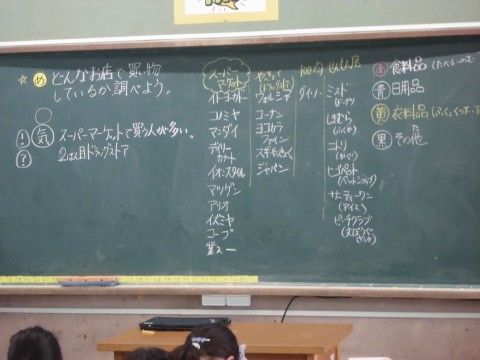 ☆ め どんなお店で買い物
しているか調べよう。
! 気 スーパーマーケットで買う人が多い。
? 2ばん目ドラッグストア
スーパー
マーケット
イトーヨーカドー
コノミヤ
マンダイ
デイリー
カナート
イオンスタイル
マツゲン
アリオ
イズミヤ
コープ
業スー
やっきょく
ウォルシア
コーナン
ココカラ
ファイン
スギやっきょく
ジャパン
100均
ダイソー
せんもん店
ミスド
(ドーナツ)
しまむら
(ふく)
ニトリ
(かぐ)
(ペットショップ)
サーティーワン
(アイス)
ピーチクラブ
赤 食料品
青 日用品
黄 衣料品
黒 その他
た